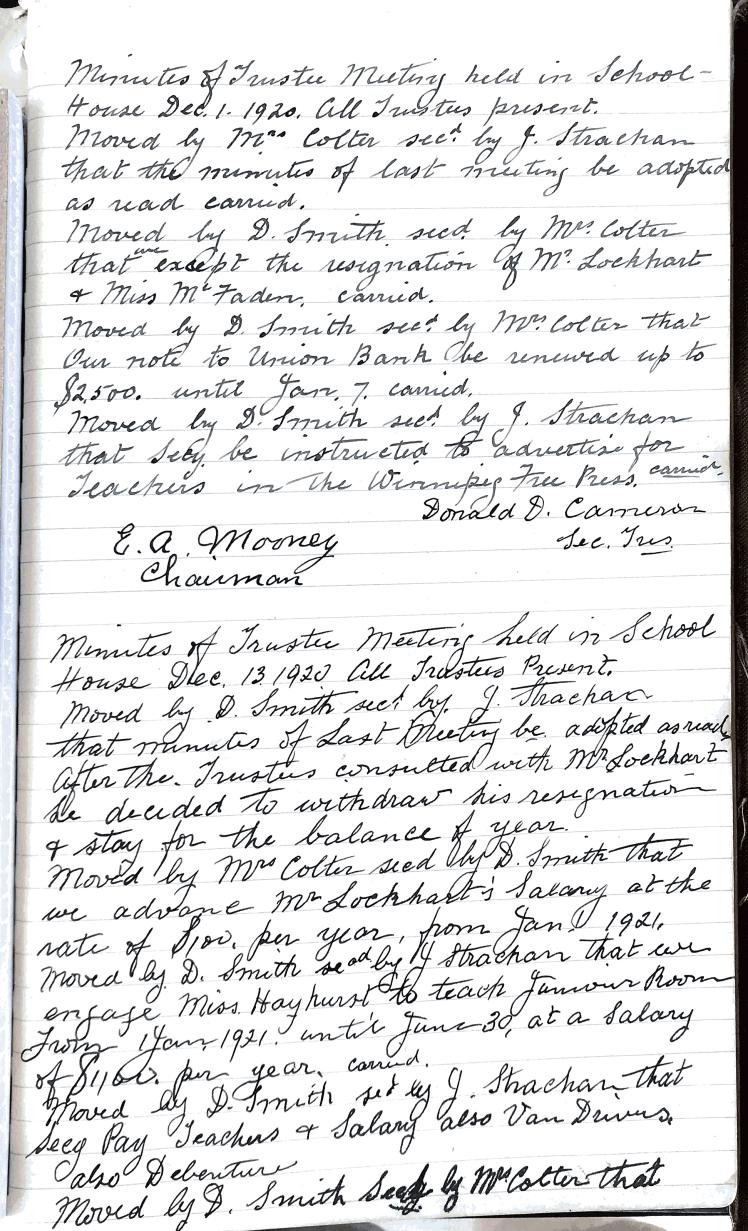 Minutes of Trustee Meeting held in School-
House Dec. 1. 1920. All Trustees present.
Moved by Mrs Colter secd. by J. Strachan
that the minutes of last meeting be adopted
as read carried.
Moved by D. Smith. secd. by Mrs. Colter
that we except the resignation of Mr. Lockhart
& Miss McFaden. carried.
Moved by D. Smith secd. by Mrs Colter that
Our note to Union Bank be renewed up to
$2,500. until Jan. 7. carried.
Moved by D. Smith secd. by J. Strachan
that Secy. be instructed to advertise for
Teachers in the Winnipeg Free Press. carried.
Donald D. Cameron
E. A. Mooney Sec. Tres.
Chairman
Minutes of Trustee Meeting held in School
House Dec. 13. 1920 All Trustees Present.
Moved by D. Smith secd by. J. Strachan
that minutes of Last Meeting be adopted as read
After the Trustees consulted with Mr Lockhart
he decided to withdraw his resignation
& stay for the balance of year.
Moved by Mrs Colter secd by D. Smith that
we advance Mr Lockhart's Salary at the
rate of $100. per year, from Jan. 1 1921.
Moved by D. Smith secd by J Strachan that we
engage Miss. Hayhurst to teach Juniour Room
From 1 Jan. 1921. until June 30, at a Salary
of $1,100. per year. carried.
Moved by D. Smith secd by J. Strachan that
Secy Pay Teachers & Salary also Van Drivers.
also Debenture
Moved by D. Smith Secd by Mrs Colter that